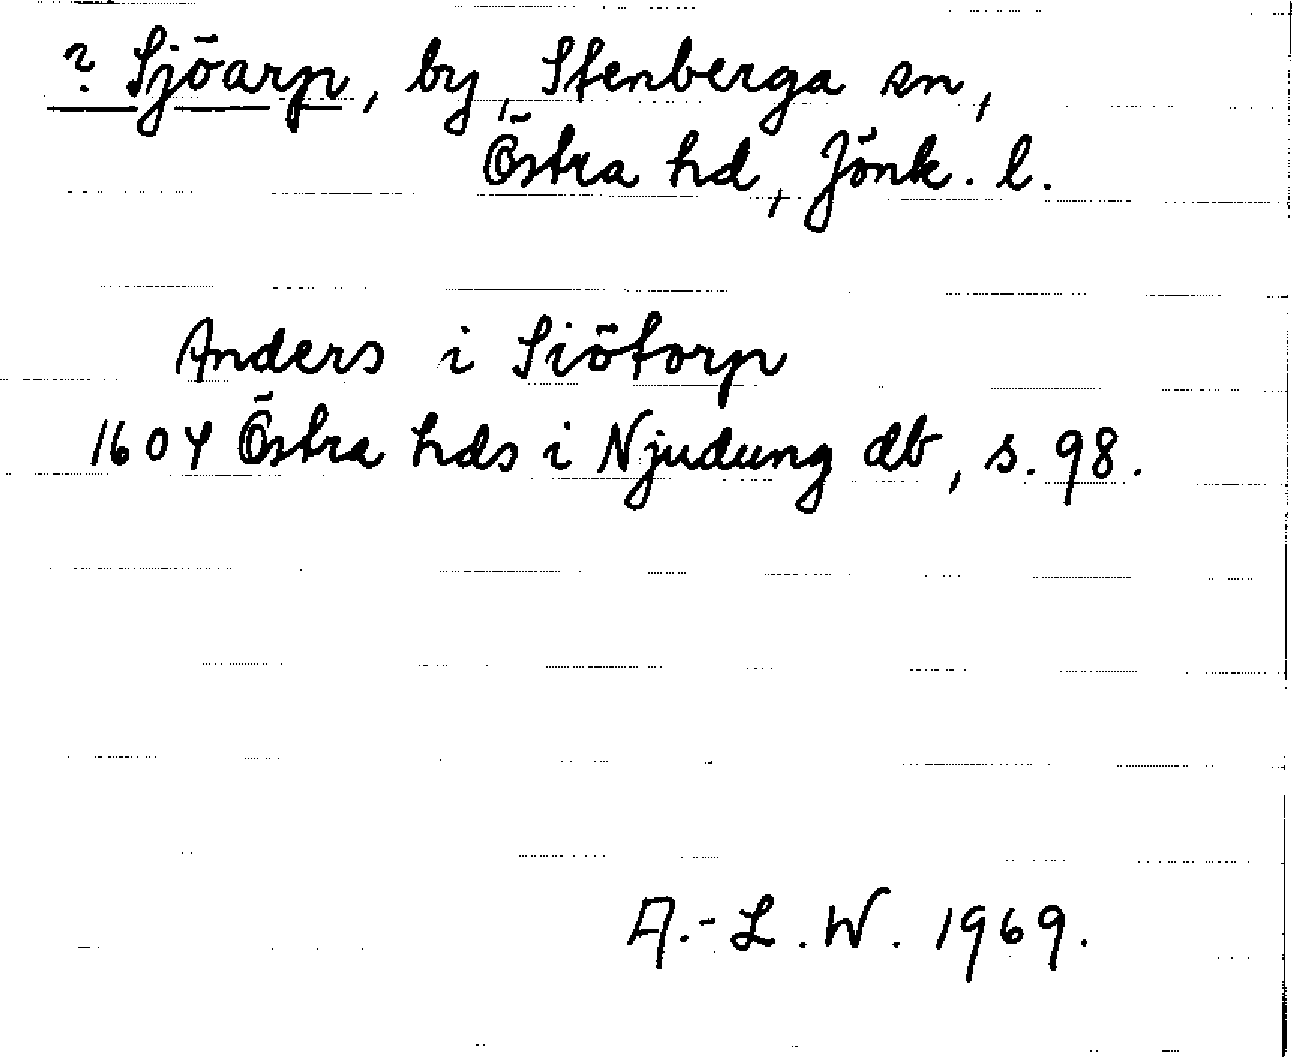 ? Sjöarp, by, Stenberga sn,
Östra hd, Jönk. l.
Anders i Siötorp
1604 Östra hds i Njudung db, s. 98.
A.-L.W. 1969.